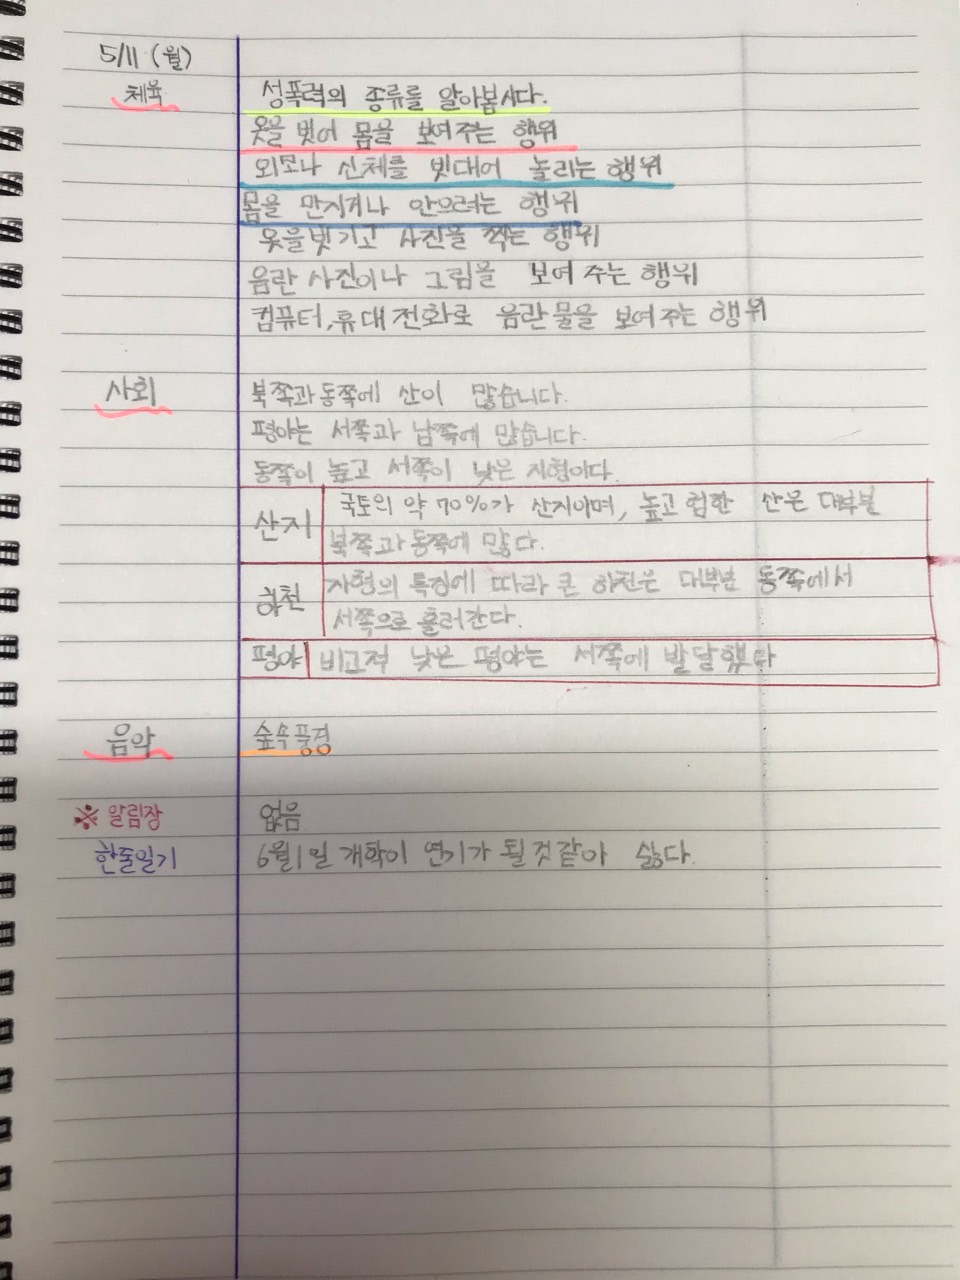 5/11 (월)
체육 성폭력의 종류를 알아봅시다.
옷을 벗어 몸을 보여주는 행위
외모나 신체를 빗대어 놀리는 행위
몸을 만지거나 안으려는 행위
옷을벗기고 사진을 찍는 행위
음란 사진이나 그림을 보여 주는 행위
컴퓨터,휴대전화로 음란물을 보여주는 행위
사회 북쪽과 동쪽에 산이 많습니다.
평야는 서쪽과 남쪽에 많습니다.
동쪽이 높고 서쪽이 낮은 지형이다.
산지 국토의 약 70%가 산지이며, 높고 험한 산은 대부분
북쪽과 동쪽에 많다.
하천 지형의 특징에 따라 큰 하천은 대부분 동쪽에서
서쪽으로 흘러간다.
평야 비교적 낮은 평야는 서쪽에 발달했다
음악 숲속풍경
※ 알림장 없음
한줄일기 6월1일 개학이 연기가 될것같아 싫다.